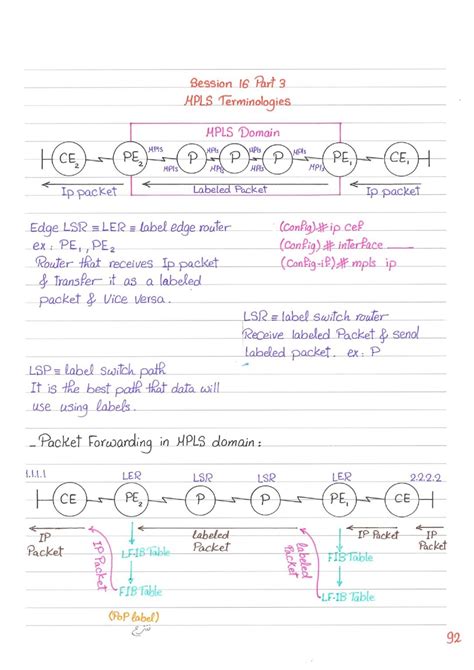 Session 16 Part 3
MPLS Terminologies
MPLS Domain
CE₂ PE₂ MPLS MPLS P MPLS MPLS P MPLS MPLS P MPLS MPLS PE₁ CE₁
Ip packet Labeled Packet Ip packet
Edge LSR ≡ LER ≡ label edge router
ex: PE₁, PE₂
Router that receives Ip packet
& transfer it as a labeled
packet & Vice Versa.
(Config)# ip cef
(Config)# interface
(Config-if)# mpls ip
LSR ≡ label switch router
Receive labeled Packet & send
labeled packet. ex: P
LSP ≡ label switch path
It is the best path that data will
use using labels.
_ Packet Forwarding in MPLS domain:
1.1.1.1 LER LSR LSR LER 2.2.2.2
CE PE₂ P P PE₁ CE
IP Packet IP Packet labeled Packet labeled Packet IP Packet IP Packet
LFIB Table
FIB Table
(PoP label)
FIB Table
LF-IB Table
92